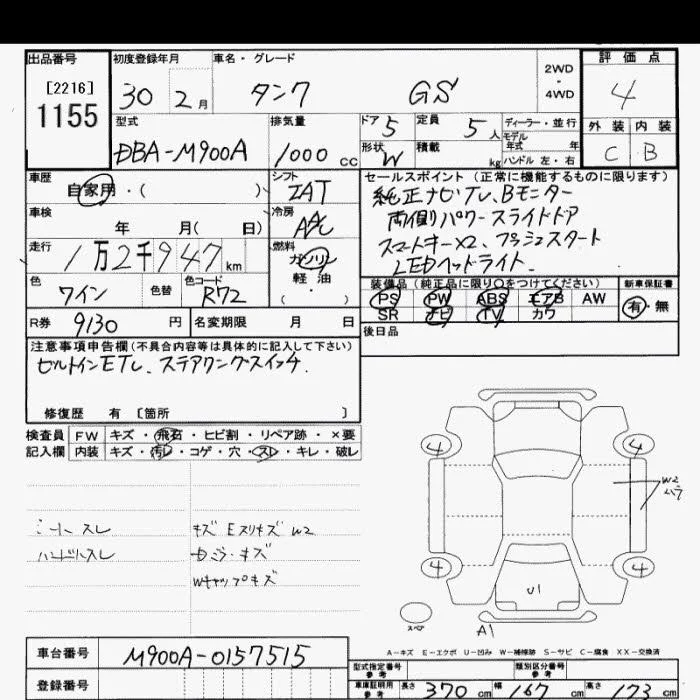 出品番号 初度登録年月 車名・グレード 2WD・4WD 評価点
[2216]
1155
30 2月 タンク GS 4
型式 排気量 ドア 5 定員 5人 ディーラー・並行
モデル年式 年
形状 W 積載 kg ハンドル 左・右
外装 内装
DBA-M900A 1000cc C B
車歴 自家用・( ) シフト IAT
セールスポイント(正常に機能するものに限ります)
純正ナビTV、Bモニター
両側パワースライドドア
スマートキーX2、プッシュスタート
LEDヘッドライト.
車検 年 月( 日) 冷房 AAC
走行 1万2千947km 燃料 ガソリン
軽油
( ・ )
色 ワイン 色替 色コード R72
装備品(純正品に限り○をつけてください) 新車保証書
PS PW ABS エアB AW 有・無
SR ナビ TV カワ
R券 9130円 名変期限 月 日
後日品
注意事項申告欄(不具合内容等は具体的に記入して下さい)
ビルトインETC、ステアリングスイッチ
修復歴 有 [箇所 ]
検査員 FW キズ・飛石・ヒビ割・リペア跡・×要
記入欄 内装 キズ・汚レ・コゲ・穴・スレ・キレ・破レ
シートスレ
ハンドルスレ
キズ Eスリキズ W2
Wキャップキズ
4 4
W2
ムラ
4 4
U1
スペア
A1
A-キズ E-エクボ U-凹み W-補修跡 S-サビ C-腐食 XX-交換済
車台番号 M900A-0157515
登録番号
型式指定番号 参考 類別区分番号 参考
車庫証明用 参考 長さ 370cm 幅 167cm 高さ 173cm